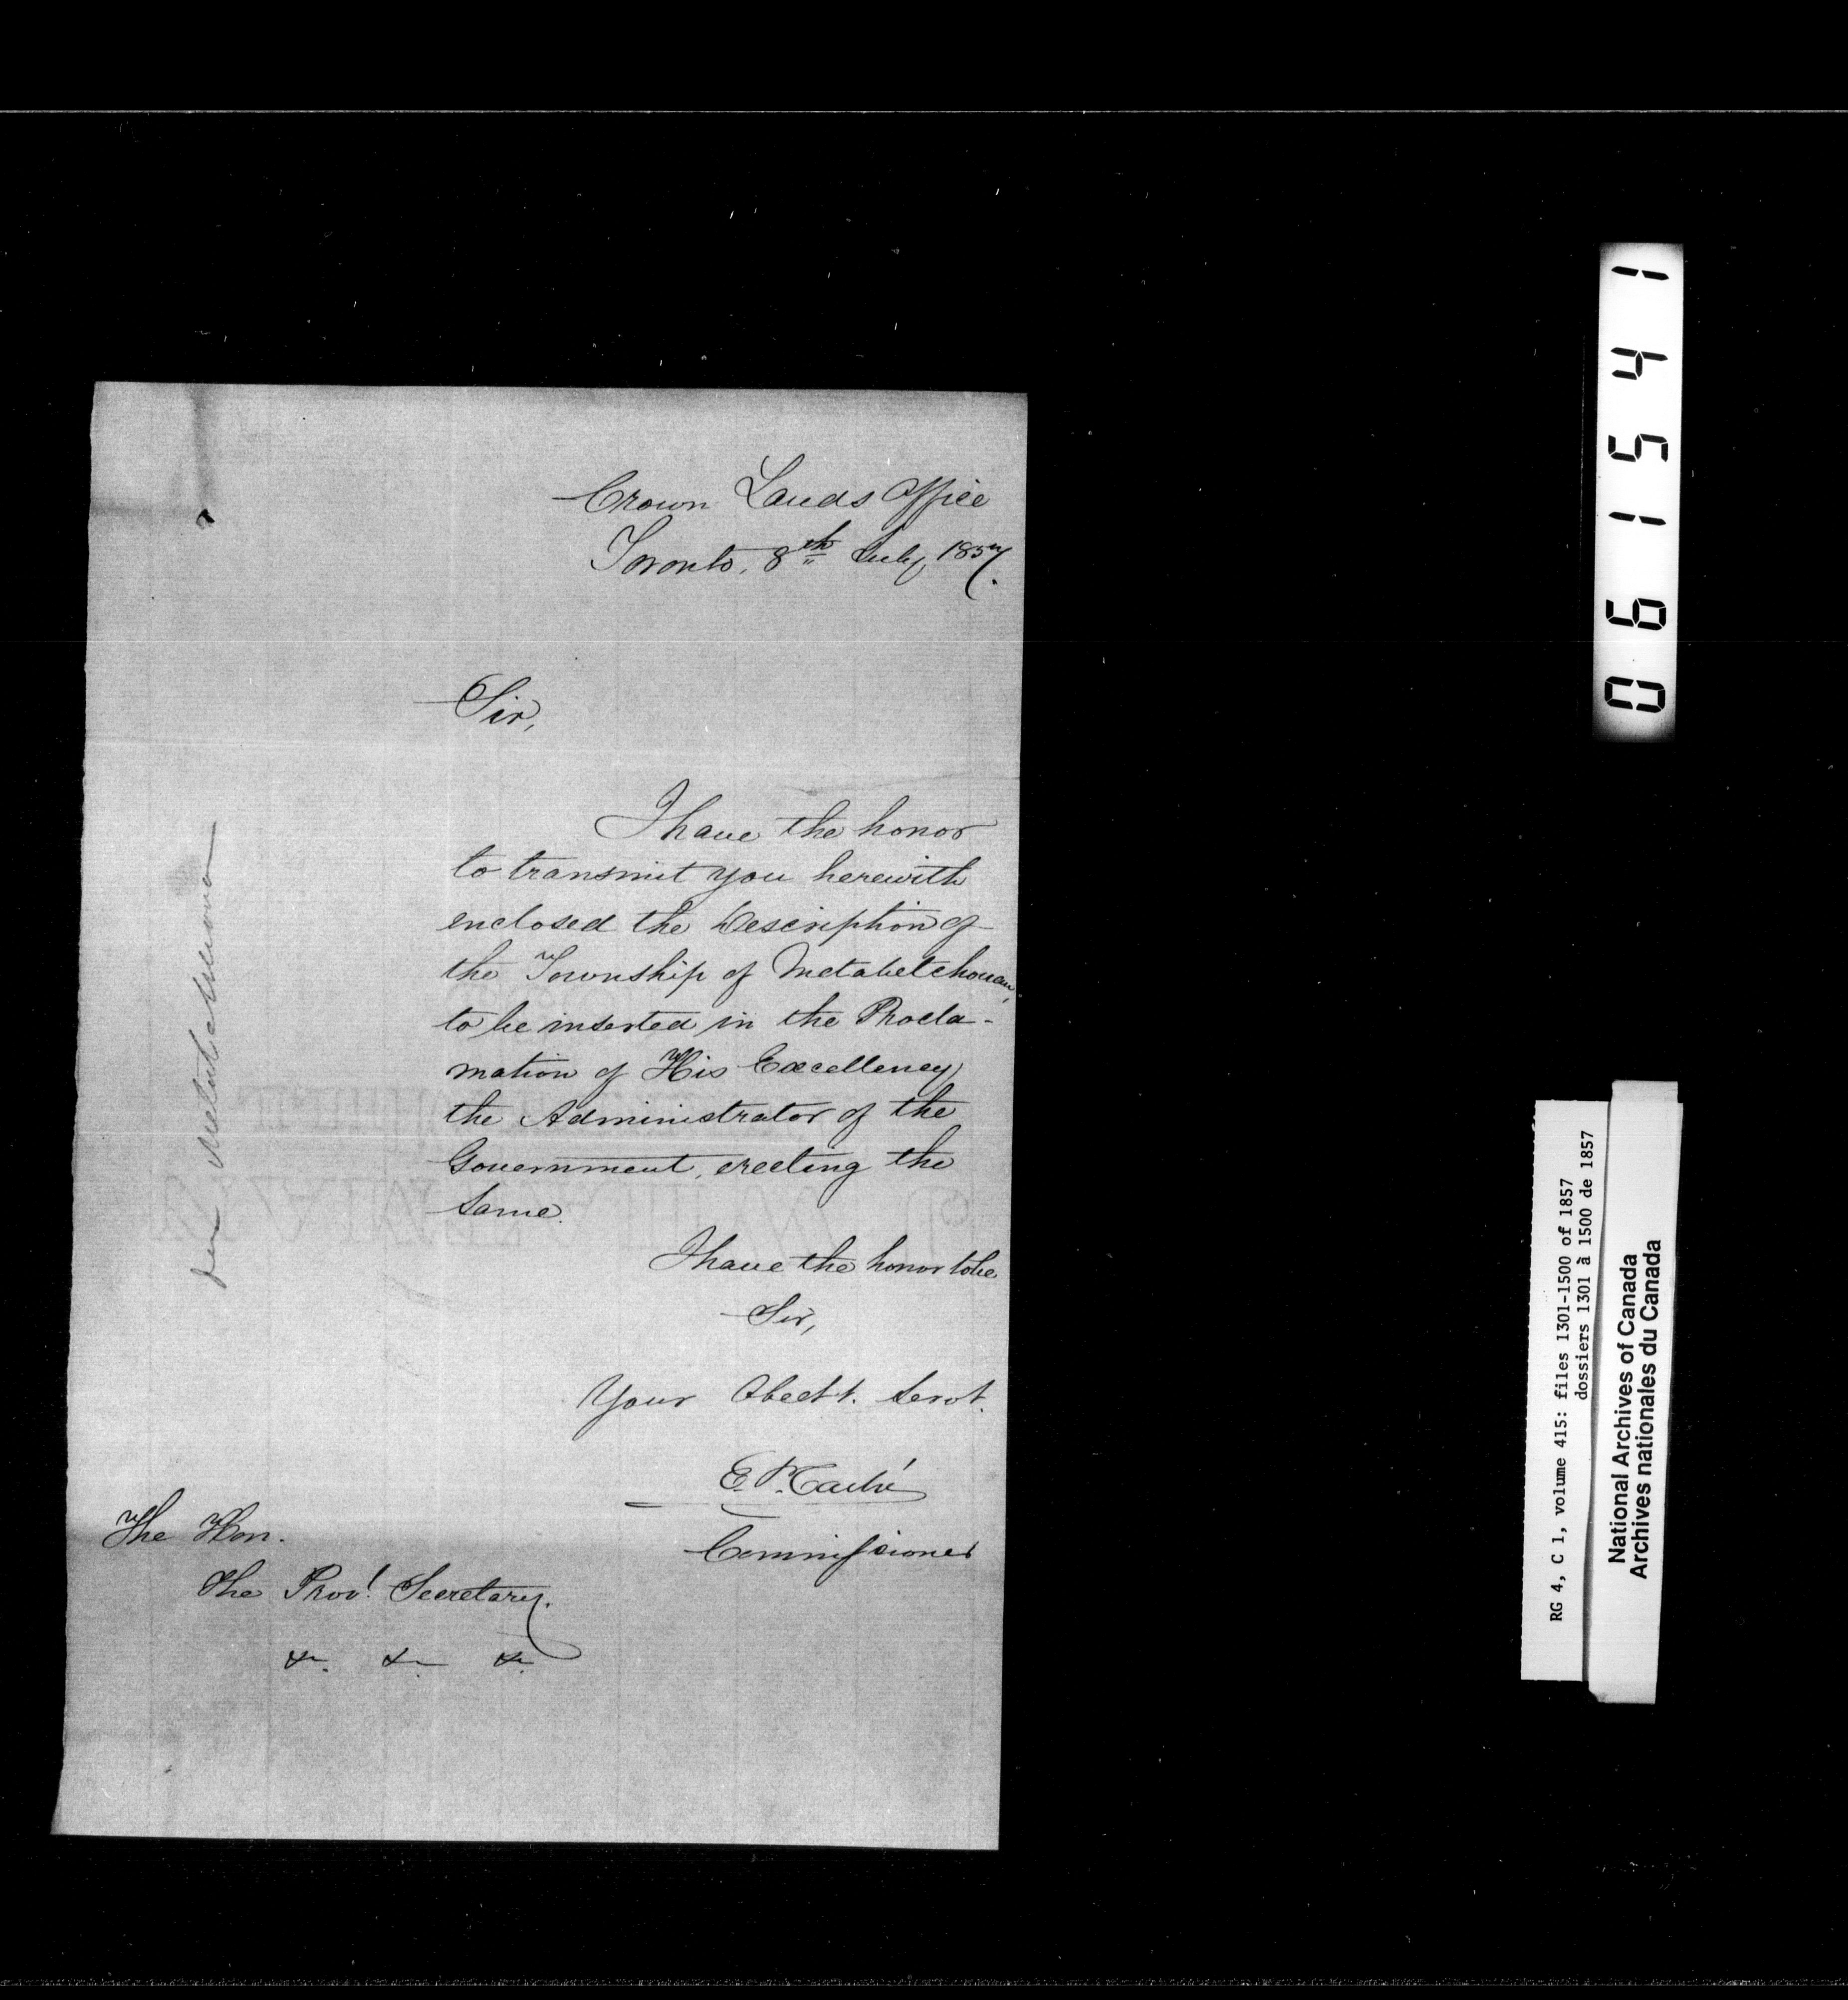 Crown Lands Office
Toronto, 8th July 1857.
Sir,
I have the honor
to transmit you herewith
enclosed the Description of
the Township of Metabetchouan,
to be inserted in the Procla-
mation of His Excellency
the Administrator of the
Government, erecting the
Same.
I have the honor to be
Sir,
Your Obedt. Servt.
E. P. Taché
Commissioner
The Hon.
The Provl. Secretary.
&c. &c. &c.
061541
RG 4, C 1, volume 415: files 1301-1500 of 1857
dossiers 1301 à 1500 de 1857
National Archives of Canada
Archives nationales du Canada